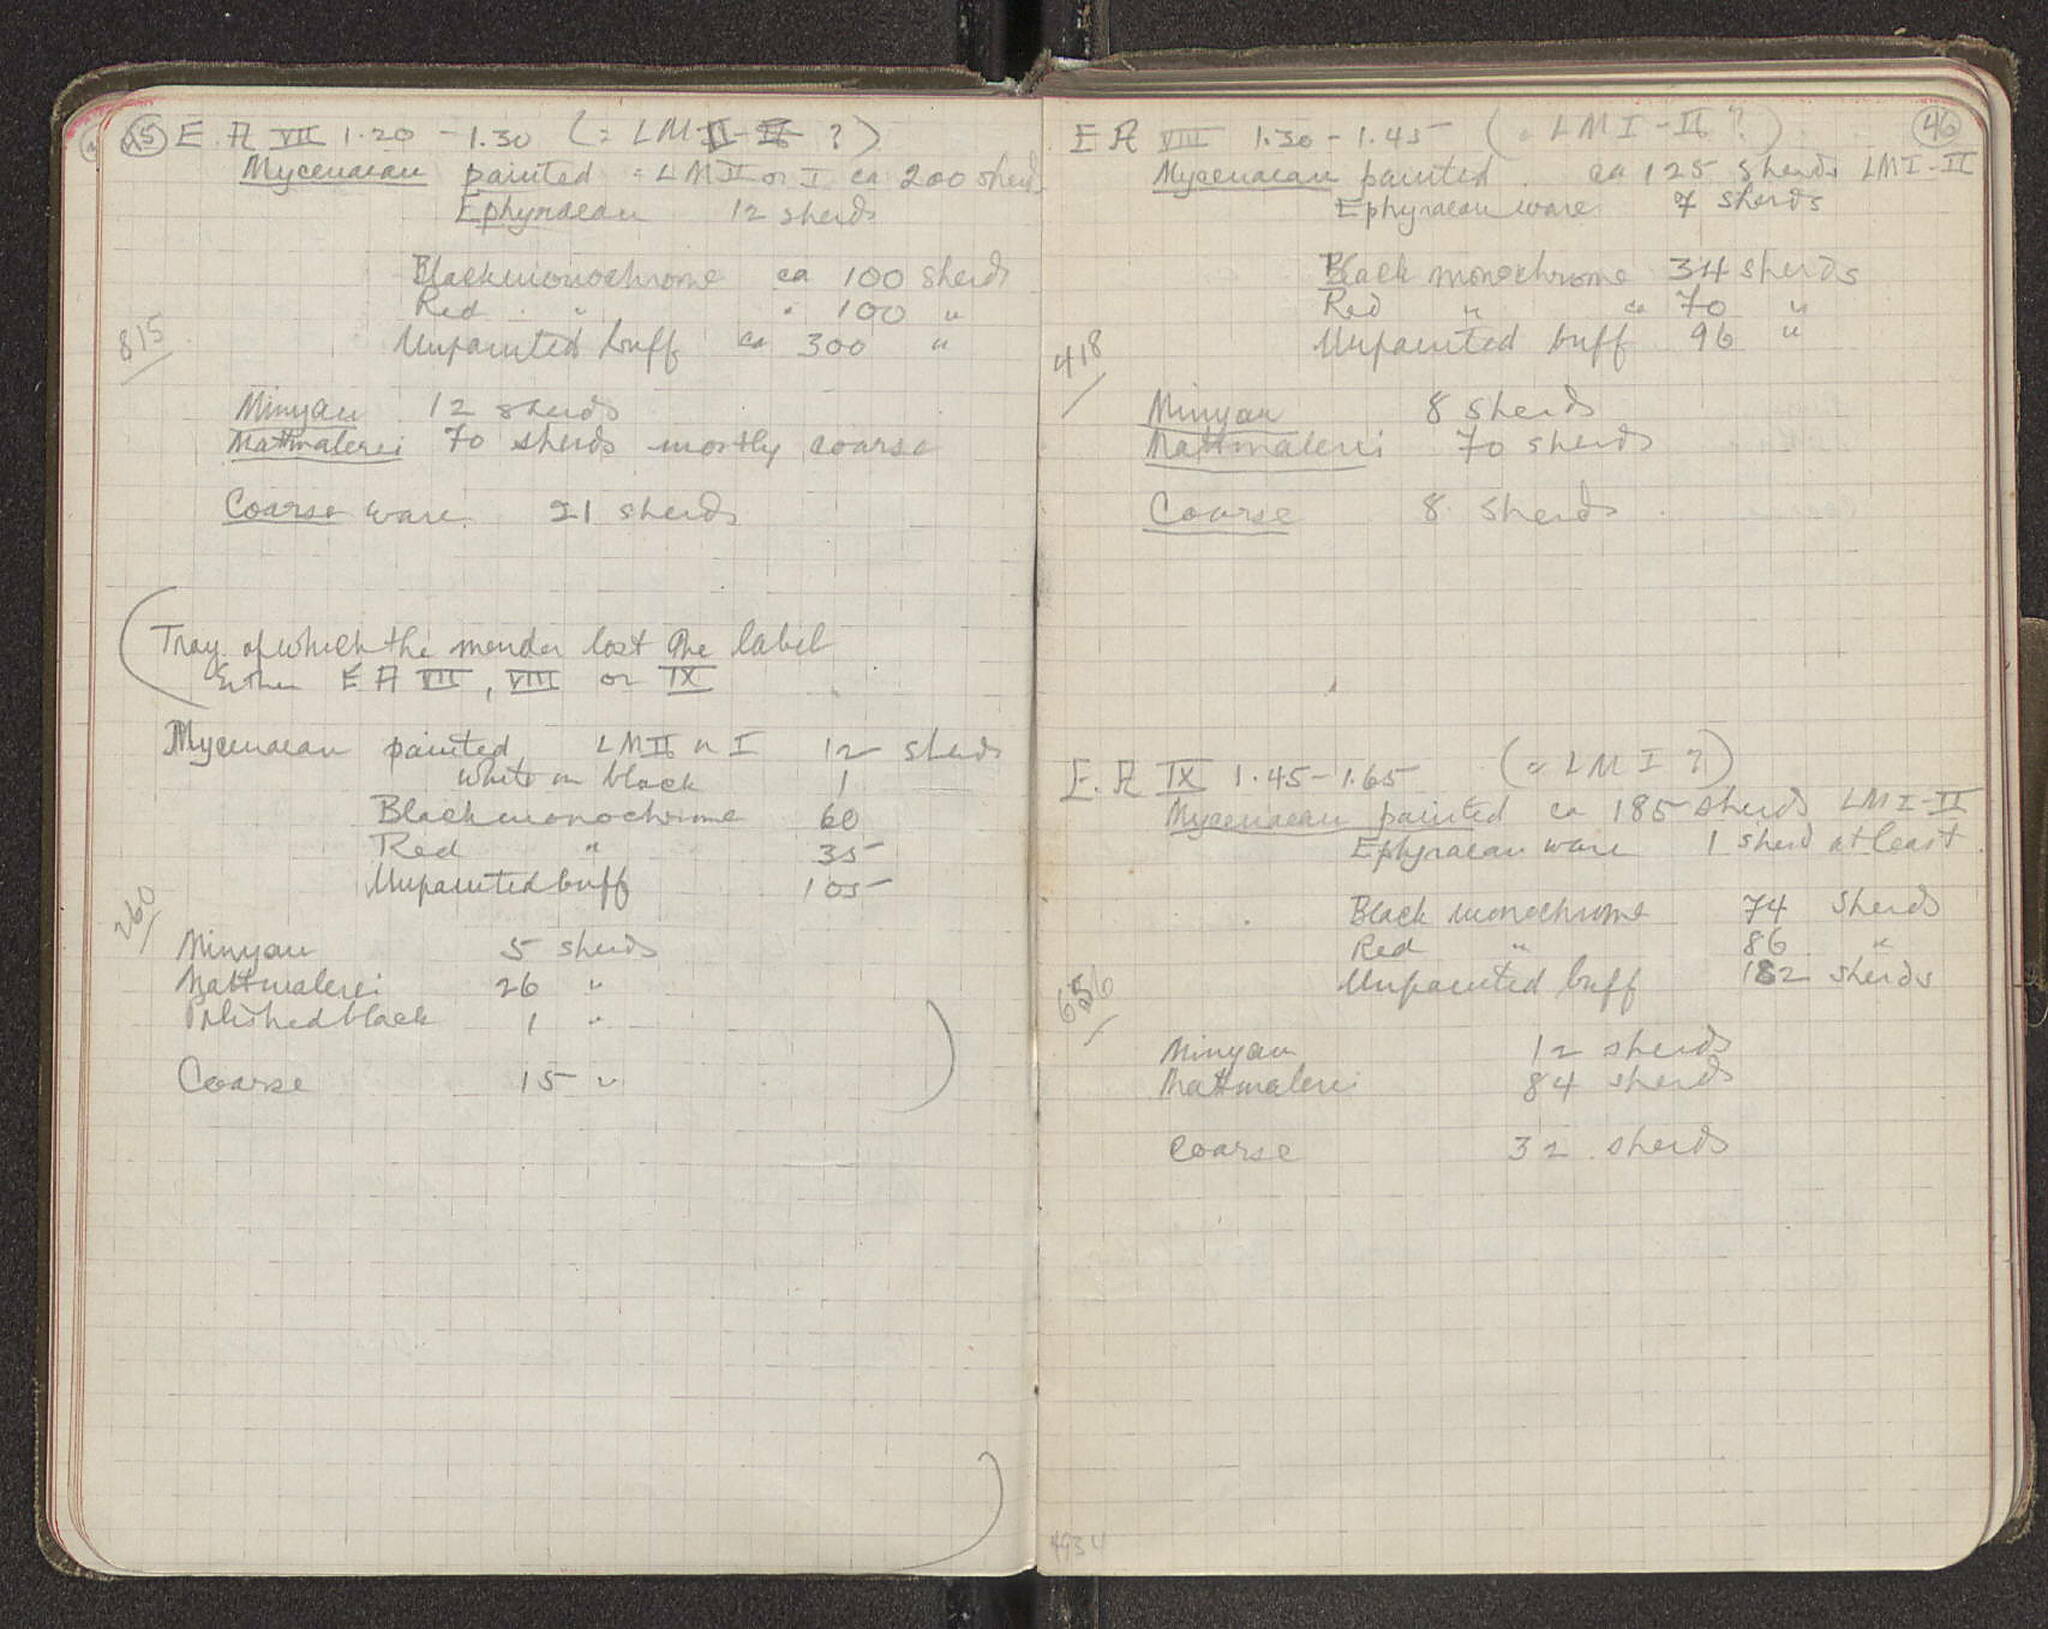 45 E. A VII 1.20 - 1.30 (= LM II - II ?)
Mycenaean painted = LM II or I ca 200 sherds
Ephyraean 12 sherds
Black monochrome ca 100 sherds
Red " " 100 "
Unpainted buff ca 300 "
815
Minyan 12 sherds
Mattmalerei 70 sherds mostly coarse
Coarse ware 21 sherds
(Tray of which the mender lost the label
Either E A VII, VIII or IX
Mycenaean painted LM II or I 12 sherds
White on black 1
Black monochrome 60
Red " 35
Unpainted buff 105
260
Minyan 5 sherds
Mattmalerei 26 "
Polished black 1 "
Coarse 15 " )
)
46
E A VIII 1.30 - 1.45 (= LM I - II ?)
Mycenaean painted ca 125 sherds LM I - II
Ephyraean ware 7 sherds
Black monochrome 34 sherds
Red " ca 70 "
Unpainted buff 96 "
418
Minyan 8 sherds
Mattmalerei 70 sherds
Coarse 8 sherds
E. A IX 1.45 - 1.65 (= LM I ?)
Mycenaean painted ca 185 sherds LM I - II
Ephyraean ware 1 sherd at least.
Black monochrome 74 sherds
Red " 86 "
Unpainted buff 182 sherds
656
Minyan 12 sherds
Mattmalerei 84 sherds
Coarse 32 sherds